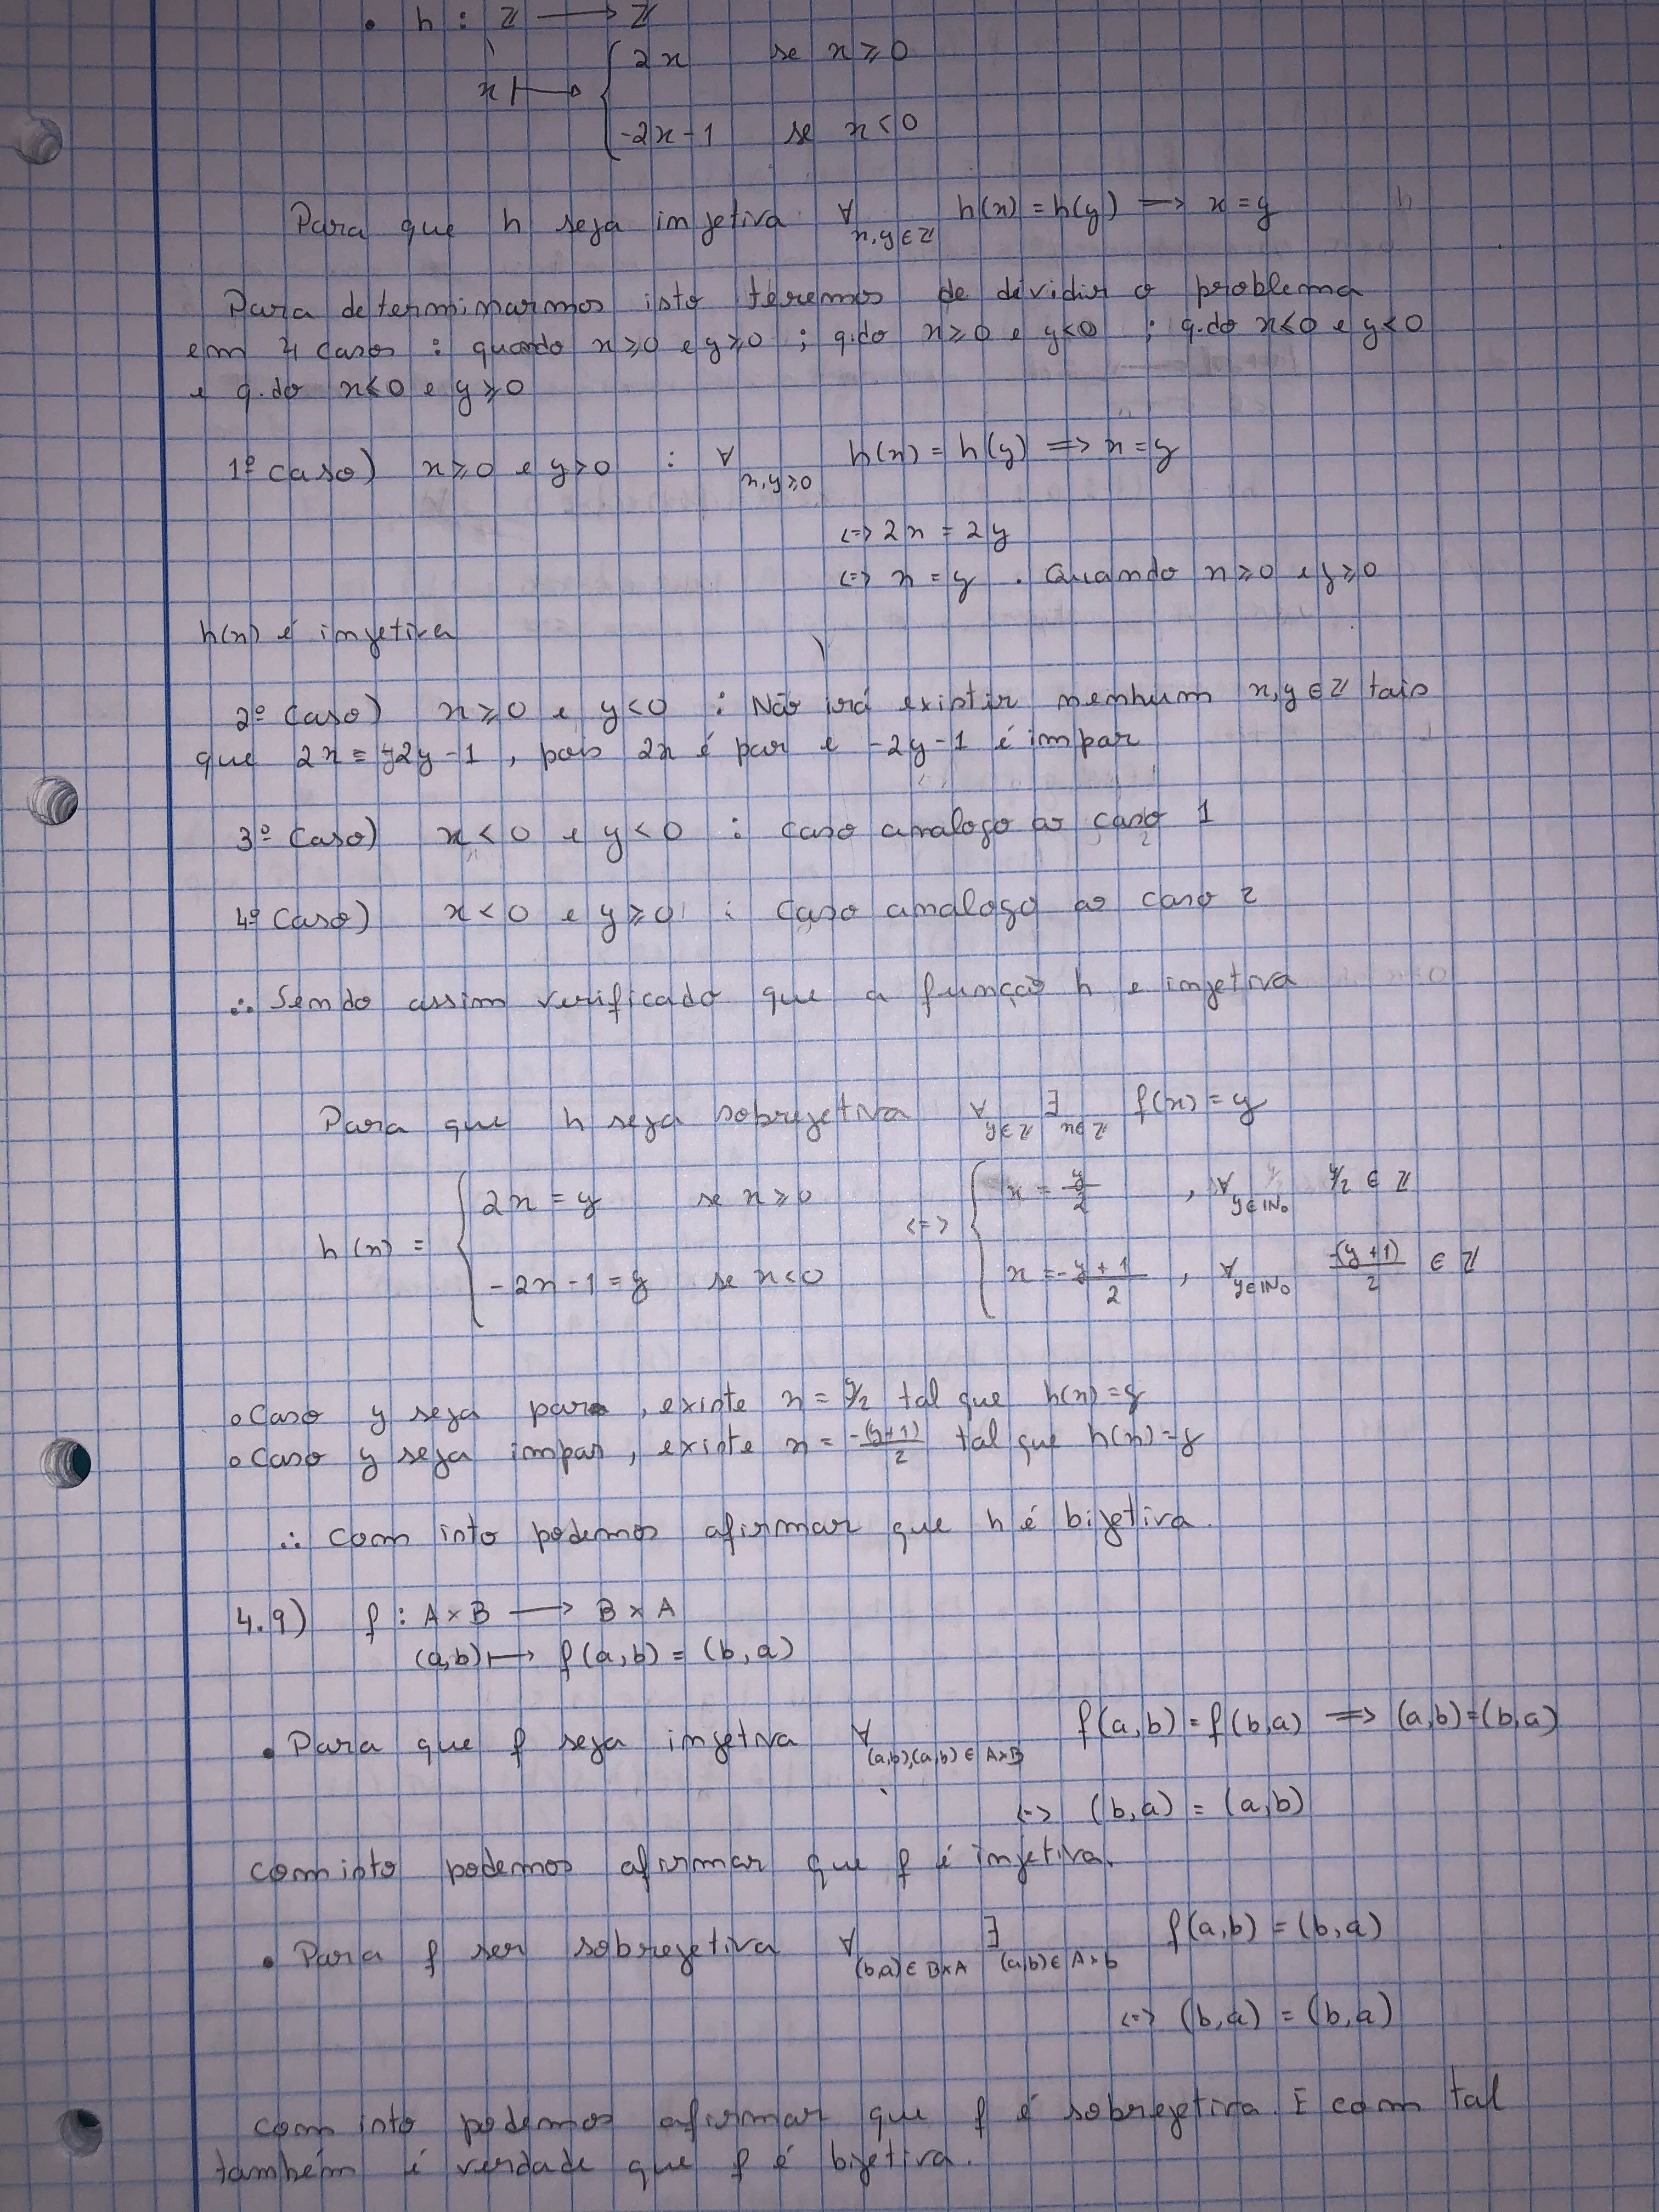 • h : ℤ ⟶ ℤ
x ⟼ { 2x se x ⩾ 0
-2x-1 se x < 0
Para que h seja injetiva ∀ x,y∈ℤ h(x) = h(y) → x = y
Para determinarmos isto teremos de dividir o problema
em 4 casos : quando x ⩾ 0 e y ⩾ 0 ; q.do x ⩾ 0 e y < 0 ; q.do x < 0 e y < 0
e q.do x < 0 e y ⩾ 0
1º Caso) x ⩾ 0 e y > 0 : ∀ x,y ⩾ 0 h(x) = h(y) ⟹ x = y
<=> 2x = 2y
<=> x = y . Quando x ⩾ 0 e y ⩾ 0
h(x) é injetiva
2º Caso) x ⩾ 0 e y < 0 : Não irá existir nenhum x,y ∈ ℤ tais
que 2x = -2y-1 , pois 2x é par e -2y-1 é impar
3º Caso) x < 0 e y < 0 : caso analogo ao caso 1
4º Caso) x < 0 e y ⩾ 0 : caso analogo ao caso 2
∴ Sendo assim verificado que a função h e injetiva
Para que h seja sobrejetiva ∀ y∈ℤ ∃ x∈ℤ f(x) = y
h(x) = { 2x = y se x ⩾ 0 <=> { x = y/2 , ∀ y∈ℕ₀ y/2 ∈ ℤ
-2x-1 = y se x < 0 x = -y+1/2 , ∀ y∈ℕ₀ -(y+1)/2 ∈ ℤ
o Caso y seja par , existe x = y/2 tal que h(x) = y
o Caso y seja impar , existe x = -(y+1)/2 tal que h(x) = y
∴ Com isto podemos afirmar que h é bijetiva.
4.9) f : A × B ⟶ B × A
(a,b) ⟼ f(a,b) = (b,a)
• Para que f seja injetiva ∀ (a,b),(a,b) ∈ A×B f(a,b) = f(b,a) ⟹ (a,b) = (b,a)
<=> (b,a) = (a,b)
com isto podemos afirmar que f é injetiva.
• Para f ser sobrejetiva ∀ (b,a) ∈ B×A ∃ (a,b) ∈ A×b f(a,b) = (b,a)
<=> (b,a) = (b,a)
com isto podemos afirmar que f é sobrejetiva. E com tal
também é verdade que f é bijetiva.